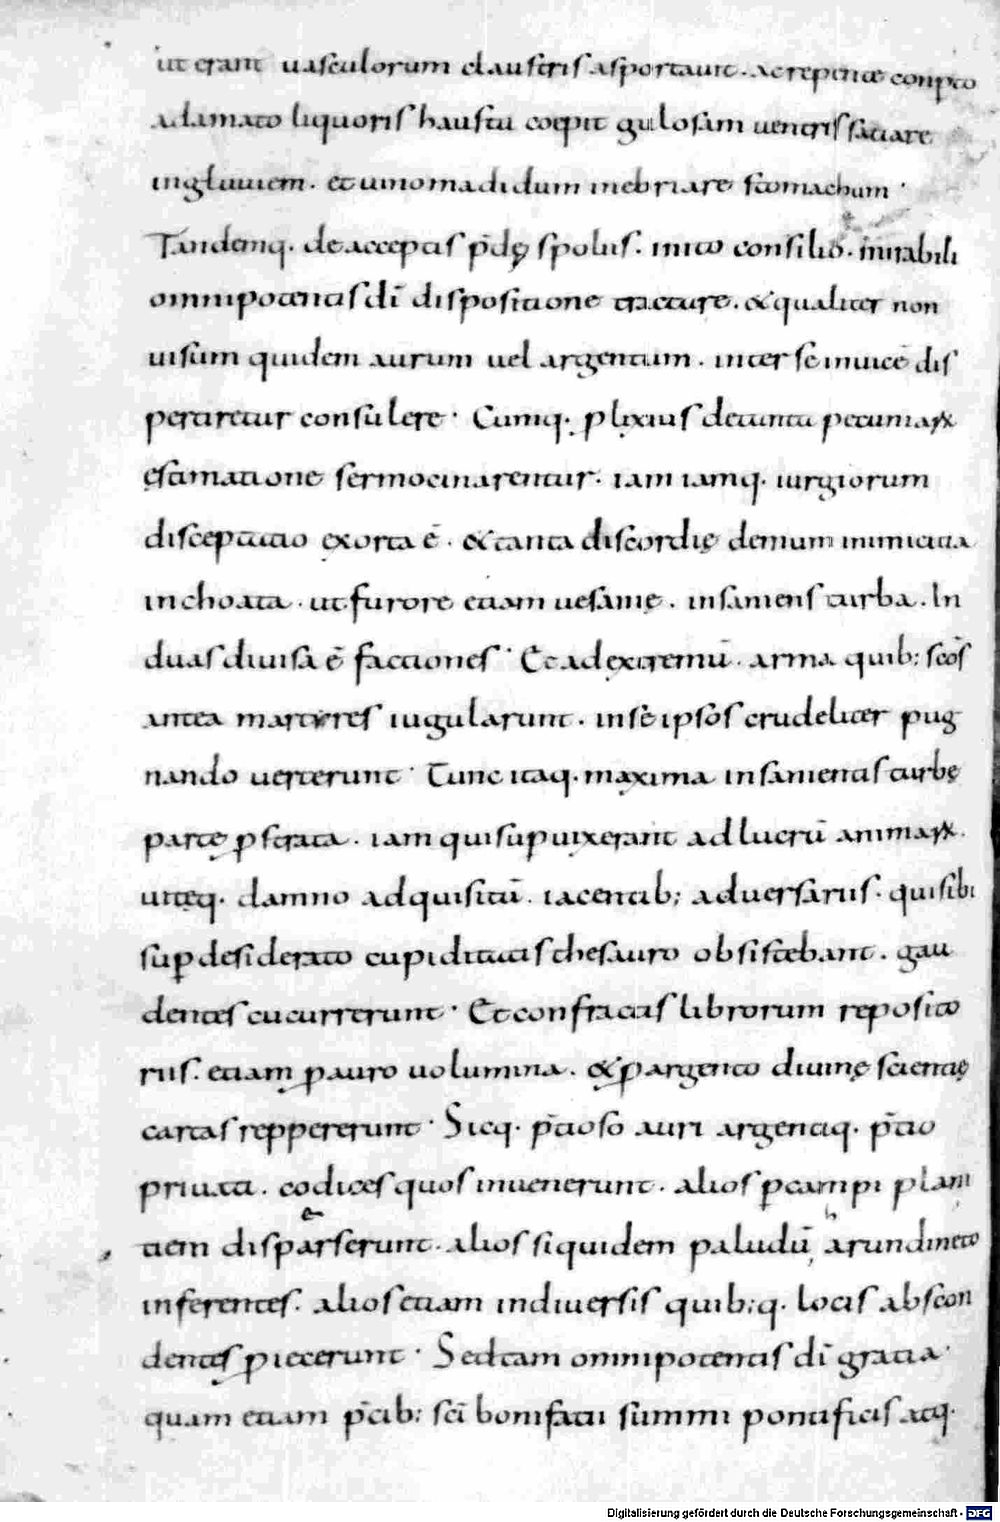 ut erant vasculorum claustris asportavit. ac repente conpto
adamato liquoris haustu coepit gulosam ventris satiare
ingluuiem. et uino madidum inebriare stomachum.
Tandemq. de acceptis p̄dę spoliis. inito consilio. mirabili
omnipotentis dī dispositione tractare. & qualiter non
uisum quidem aurum uel argentum. inter se inuicē dis
pertiretur consulere. Cumq. plixius de tanta pecuniaꝝ
ęstimatione sermocinarentur. iam iamq. iurgiorum
disceptatio exorta ē. & tanta discordię demum inimicitia
inchoata. ut furore etiam uesanię. insaniens turba. In
duas diuisa ē factiones. Et ad extremū. arma quib; scōs
antea martyres iugularunt. in se ipsos crudeliter pug
nando uerterunt. Tunc itaq. maxima insanientis turbę
parte ꝑstrata. iam qui supuixerant ad lucrū animaꝝ.
uitęq. damno adquisitū. iacentib; aduersariis. qui sibi
suꝑ desiderato cupiditatis thesauro obsistebant. gau
dentes cucurrerunt. Et confractis librorum reposito
riis. etiam ꝑ auro uolumina. & ꝑ argento diuinę scientię
cartas reppererunt. Sicq. p̄tioso auri argentiq. p̄tio
priuati. codices quos inuenerunt. alios ꝑ campi plani
tiem disparserunt. alios siquidem paludū arundineto
inferentes. alios etiam in diuersis quib;q. locis abscon
dentes ꝓiecerunt. Sed tam omnipotentis dī gratia.
quam etiam p̄cib; scī bonifatii summi pontificis atq.
Digitalisierung gefördert durch die Deutsche Forschungsgemeinschaft - DFG